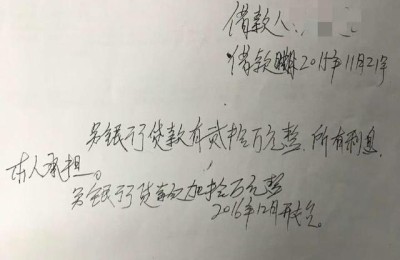 借款人:
借款日期2015年11月21号
另银行贷款有贰拾万元整,所有利息,
本人承担。
另银行贷款加拾万元整
2016年12月开始。